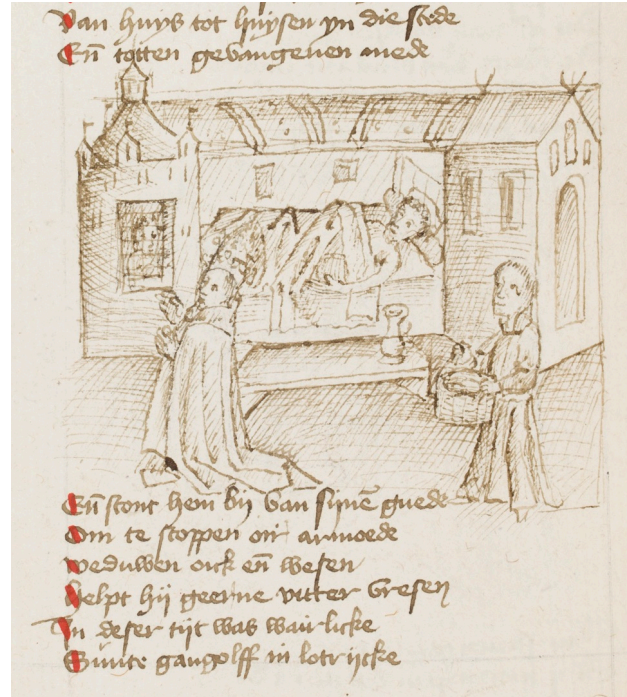 Van huys tot huysen yn die stede
En̄ totten gevangenen mede
En̄ stont hem bij van sijnē guede
Om te stoppen oir armoede
weduwen oick en̄ wesen
Helpt hij geerne vitter vresen
In deser tijt was wairlicke
Sunte gangolff in lotrijcke